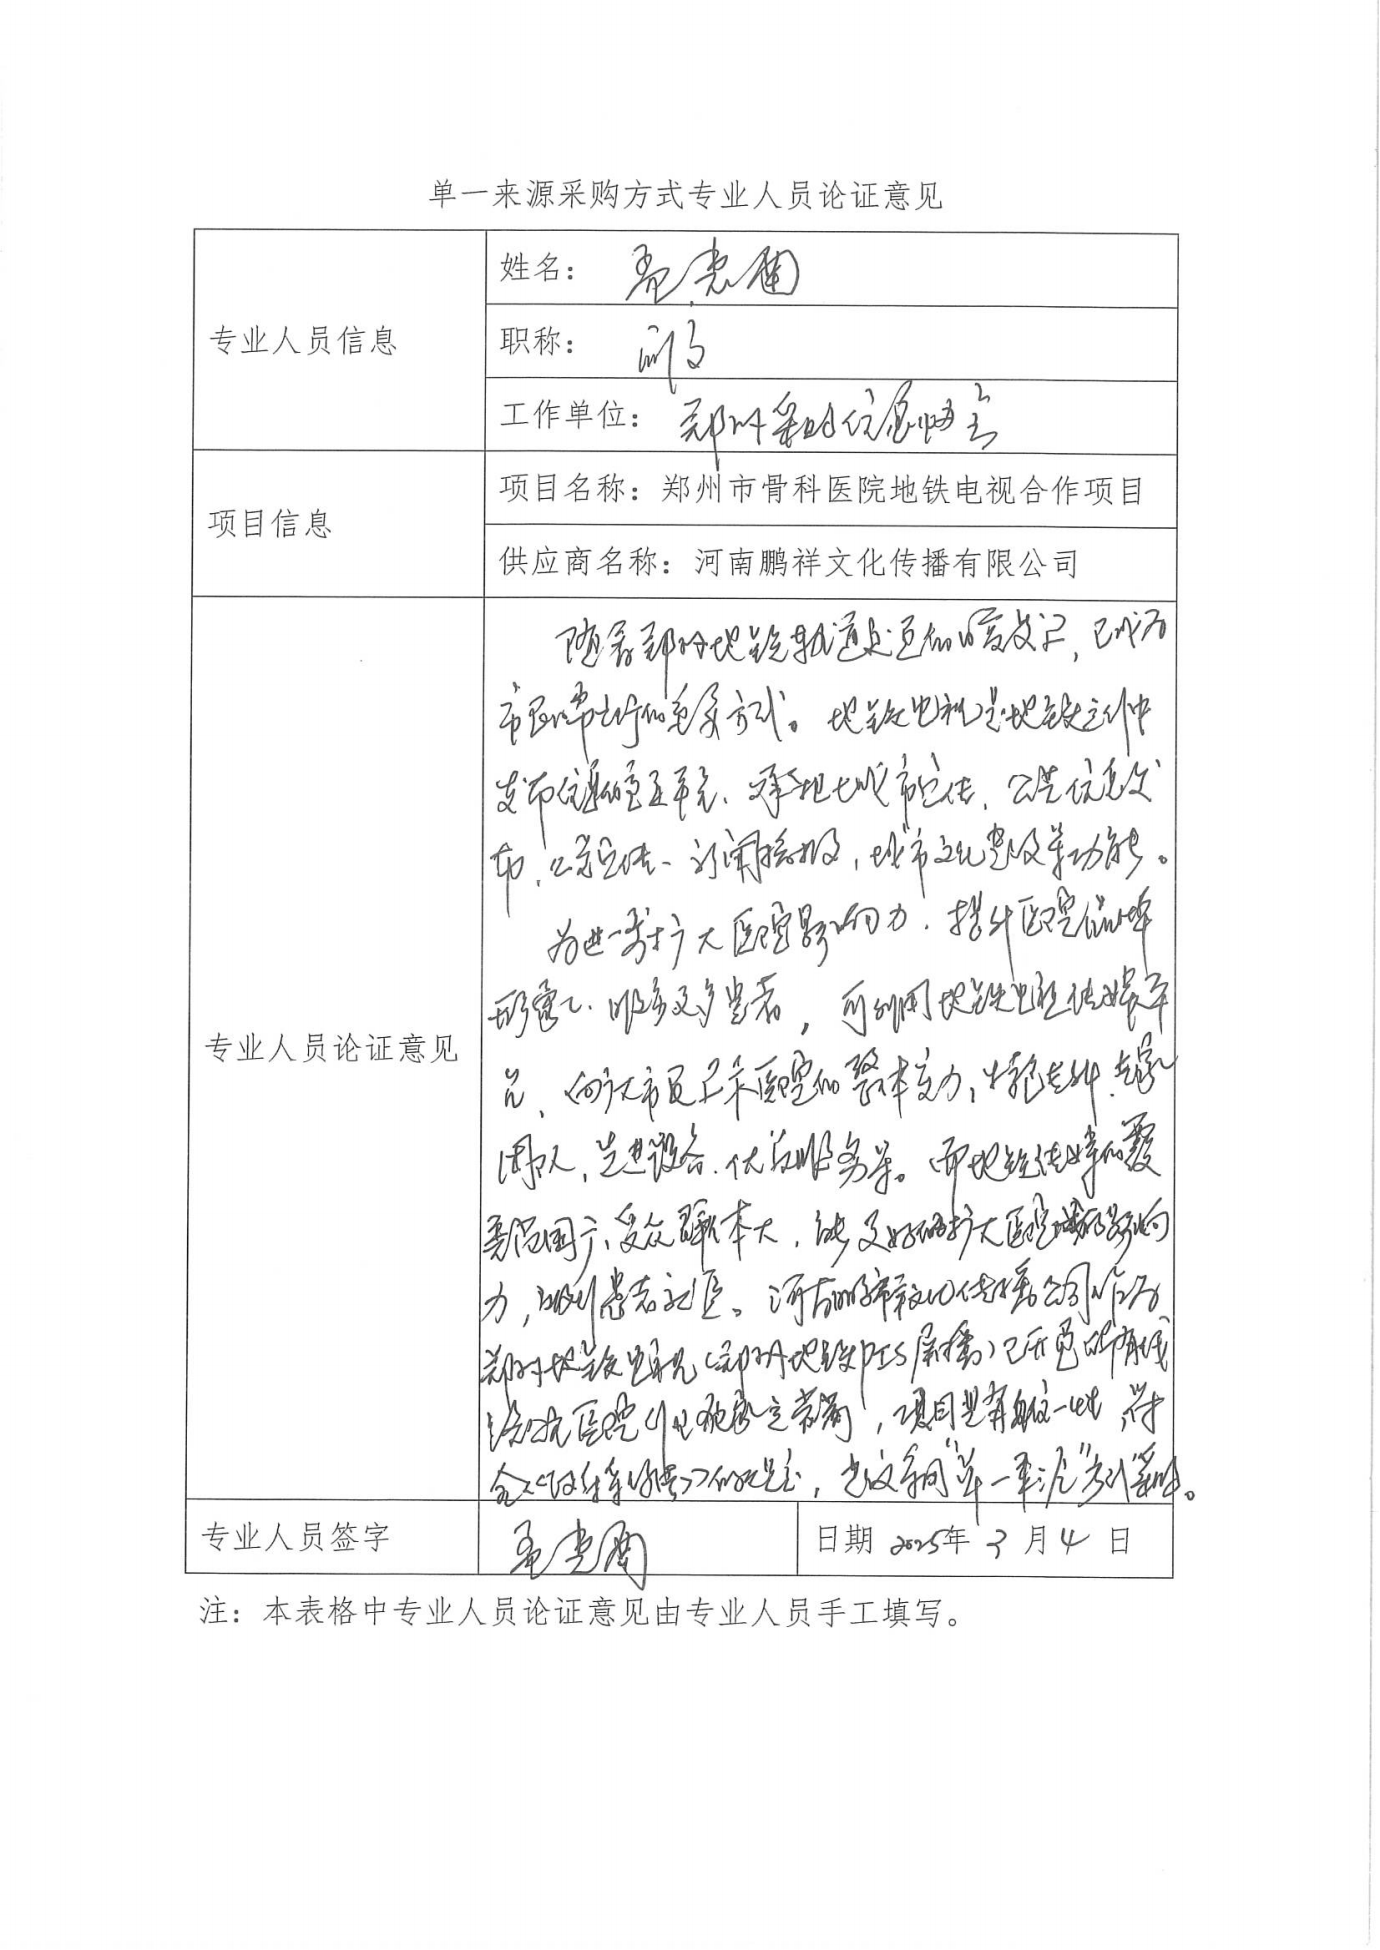 单一来源采购方式专业人员论证意见
专业人员信息
姓名：孟
职称：
工作单位：郑州采购信息协会
项目信息
项目名称：郑州市骨科医院地铁电视合作项目
供应商名称：河南鹏祥文化传播有限公司
专业人员论证意见
随着郑州地铁轨道交通的发展，已成为
市民日常出行的重要方式。地铁电视是地铁文化中
发布信息的重要单元、承担七城市宣传、公共信息发
布、公益宣传、新闻播报，城市文化普及等功能。
为进一步扩大医院影响力、提升医院品牌
形象、服务更多患者，可利用地铁电视传媒平
台、向广大市民展示医院的整体实力，特色专科、专家
团队，先进设备、优质服务等。而地铁传媒的覆
盖范围广、受众群体大，能更好的扩大医院影响
力，患者。河南鹏祥文化传播公司作为
郑州地铁电视（郑州地铁PIS屏播）已开通的有线
医院，项目具有唯一性，符
合《政府采购法》的规定，建议采用“单一来源”方式采购。
专业人员签字
孟
日期 2025年3月4日
注：本表格中专业人员论证意见由专业人员手工填写。